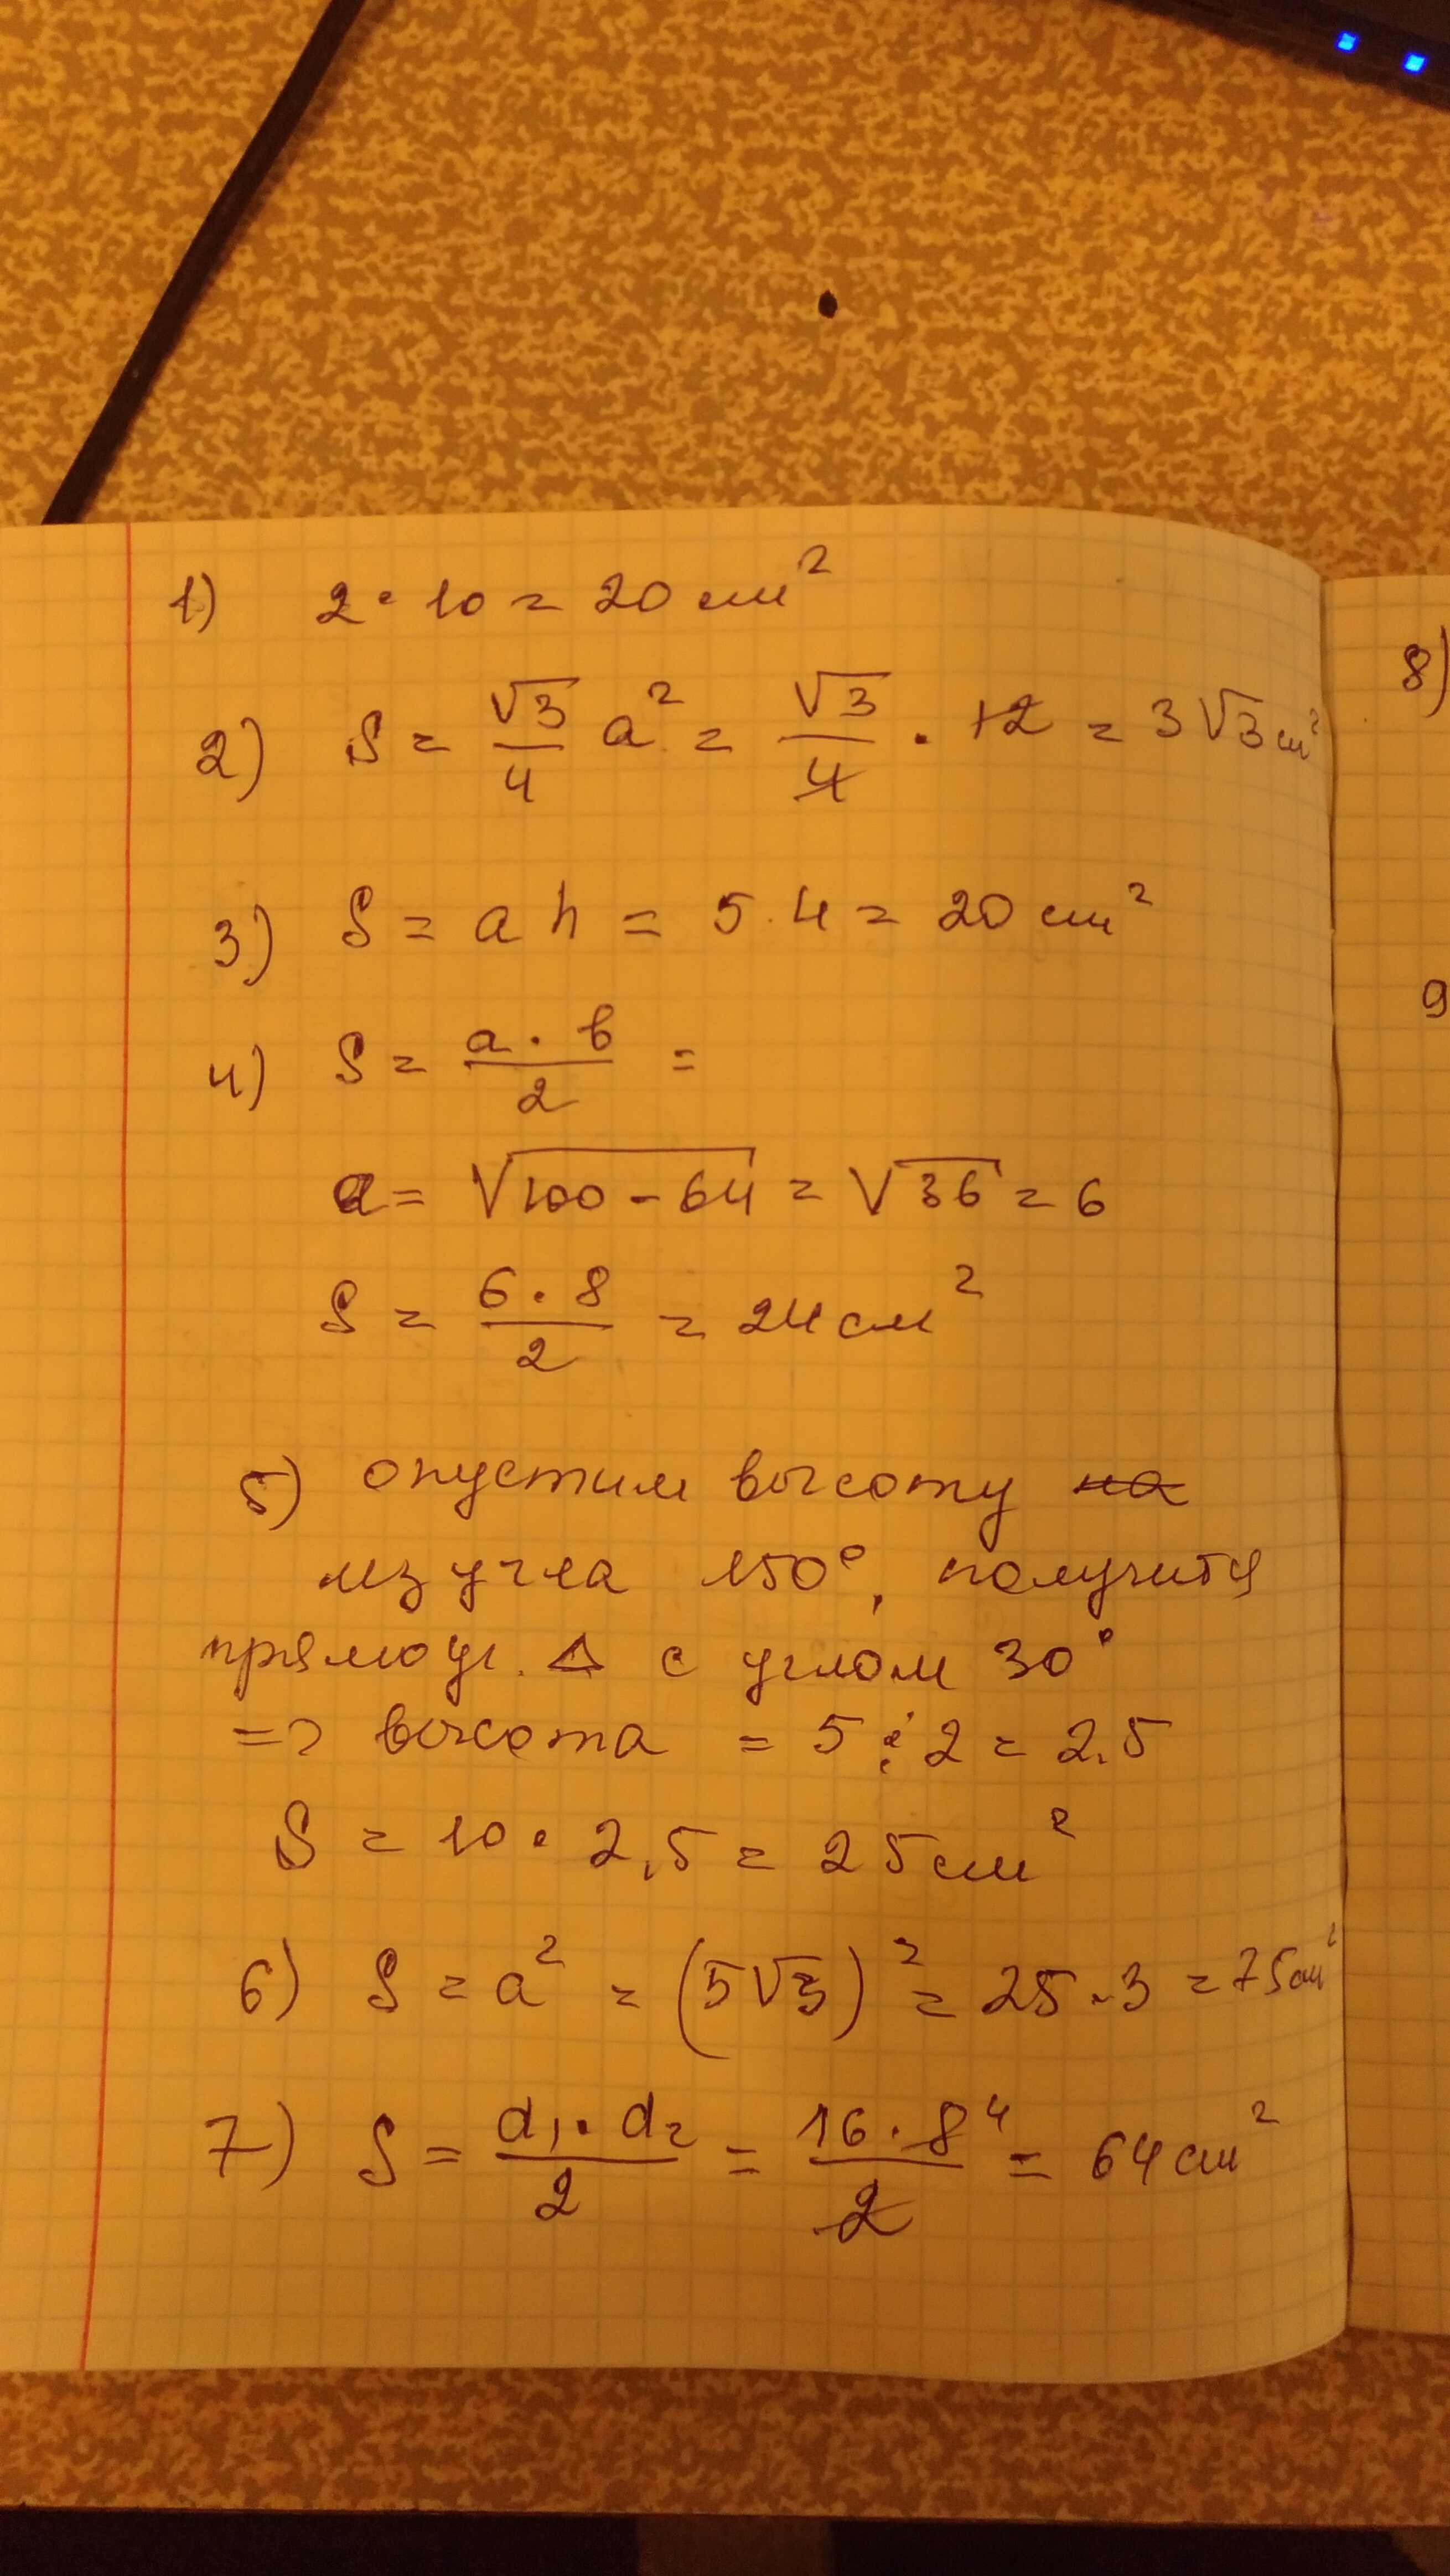 1) 2 · 10 = 20 см²
2) S = √3/4 a² = √3/4 · 12 = 3√3 см²
3) S = a h = 5 · 4 = 20 см²
4) S = a · b / 2 =
a = √100 - 64 = √36 = 6
S = 6 · 8 / 2 = 24 см²
5) опустим высоту на
из угла 150°, получится
прямоуг. Δ с углом 30°
=> высота = 5 : 2 = 2.5
S = 10 · 2,5 = 25 см²
6) S = a² = (5√3)² = 25 · 3 = 75 см²
7) S = d₁ · d₂ / 2 = 16 · 8 4 / 2 = 64 см²
8)
9